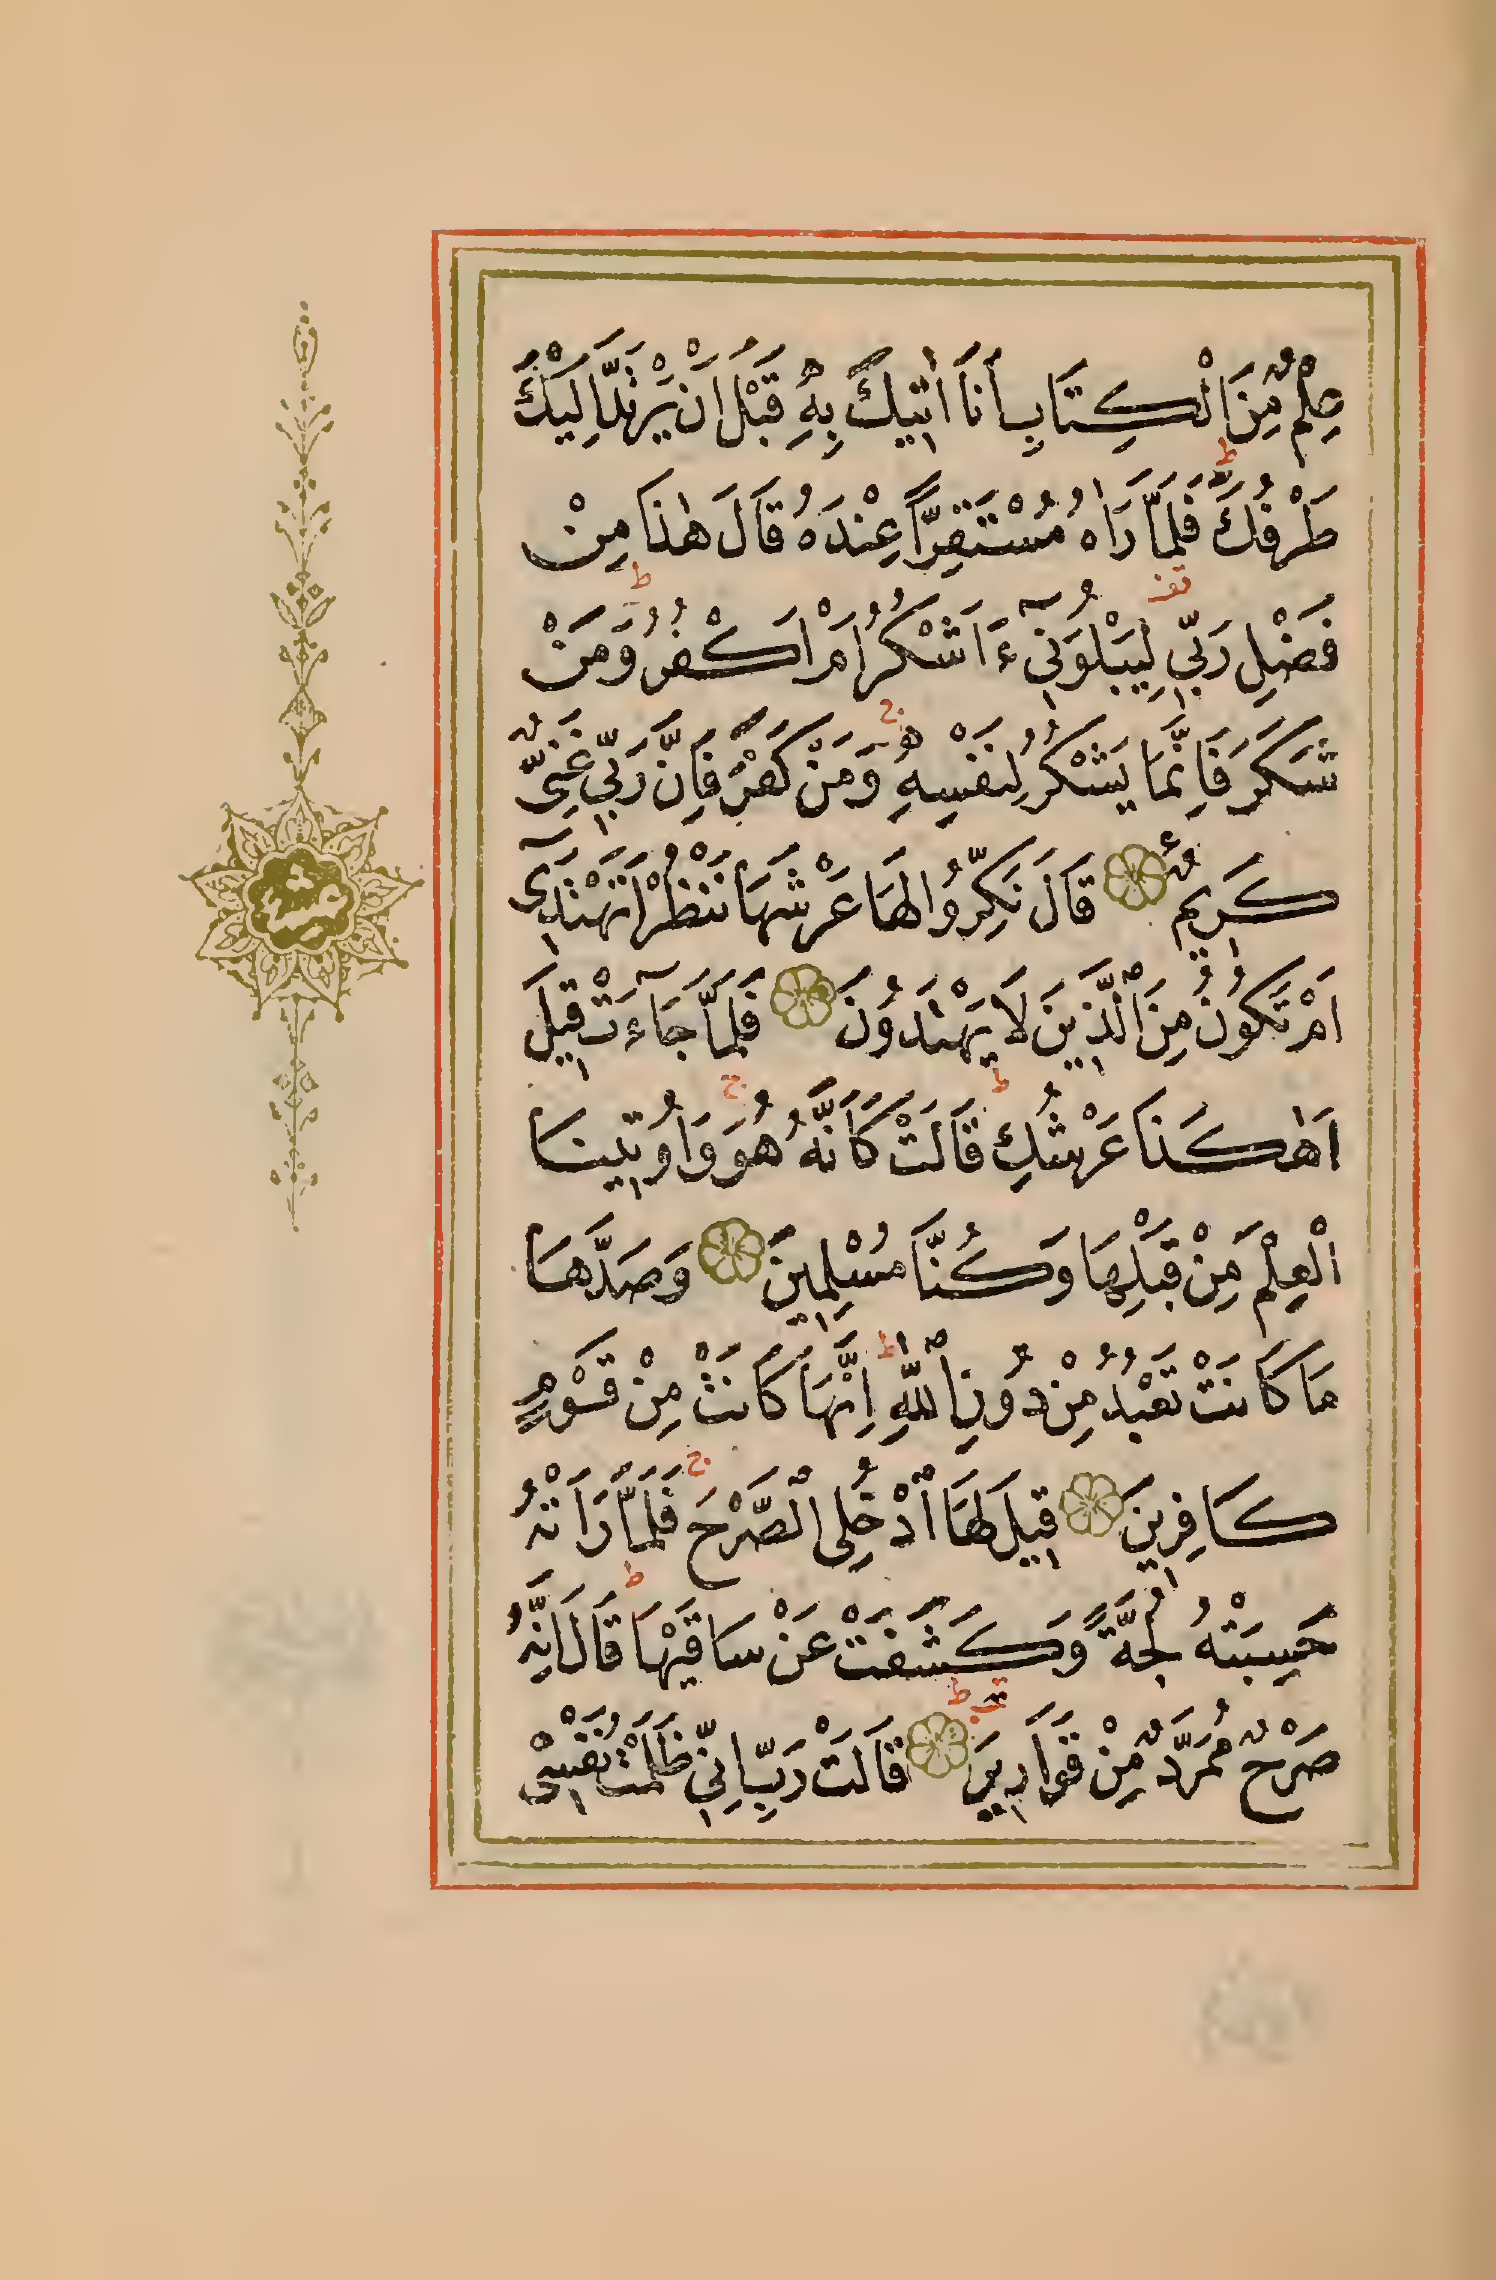 عِلْمٌ مِنَ الْكِتَابِ أَنَا اٰتِيكَ بِهِ قَبْلَ اَنْ يَرْتَدَّ اِلَيْكَ
طَرْفُكَ ط فَلَمَّا رَاٰهُ مُسْتَقِرًّا عِنْدَهُ قَالَ هٰذَا مِنْ
فَضْلِ رَبِّي لِيَبْلُوَنِيٓ ءَاَشْكُرُ اَمْ اَكْفُرُ ط وَمَنْ
شَكَرَ فَاِنَّمَا يَشْكُرُ لِنَفْسِهِ ج وَمَنْ كَفَرَ فَاِنَّ رَبِّي غَنِىٌّ
كَرِيمٌ قَالَ نَكِّرُوا لَهَا عَرْشَهَا نَنْظُرْ اَتَهْتَدِيٓ
اَمْ تَكُونُ مِنَ الَّذِينَ لَا يَهْتَدُونَ فَلَمَّا جَآءَتْ قِيلَ
اَهٰكَذَا عَرْشُكِ ط قَالَتْ كَاَنَّهُ هُوَ ج وَاُوتِينَا
الْعِلْمَ مِنْ قَبْلِهَا وَكُنَّا مُسْلِمِينَ وَصَدَّهَا
مَا كَانَتْ تَعْبُدُ مِنْ دُونِ اللّٰهِ ط اِنَّهَا كَانَتْ مِنْ قَوْمٍ
كَافِرِينَ قِيلَ لَهَا ادْخُلِى الصَّرْحَ ج فَلَمَّا رَاَتْهُ
حَسِبَتْهُ لُجَّةً وَكَشَفَتْ عَنْ سَاقَيْهَا ط قَالَ اِنَّهُ
صَرْحٌ مُمَرَّدٌ مِنْ قَوَارِيرَ ط قَالَتْ رَبِّ اِنِّي ظَلَمْتُ نَفْسِى